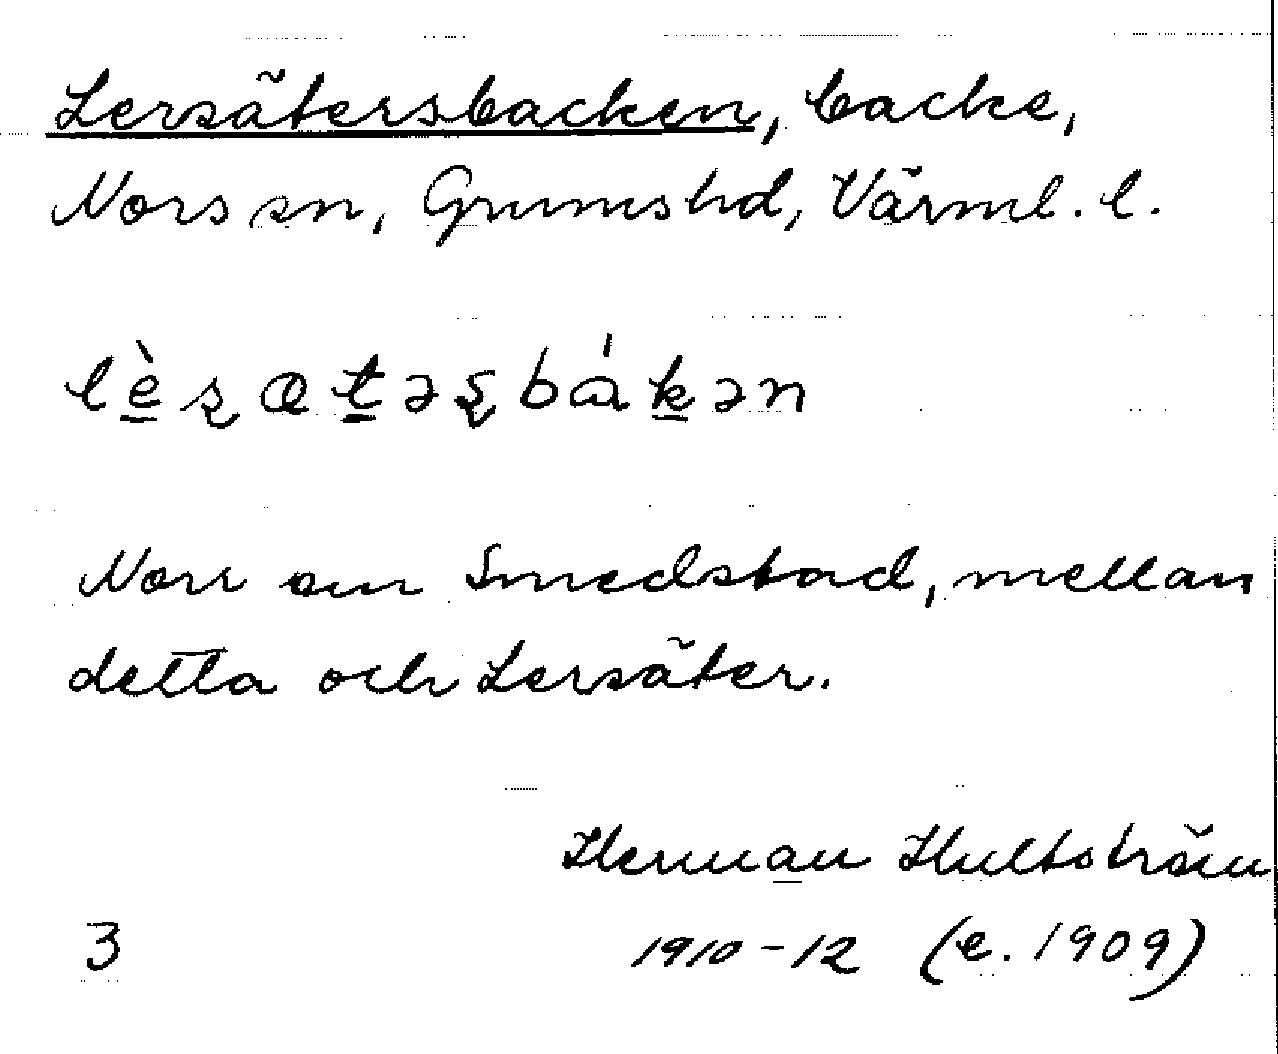 Lersätersbacken, backe,
Nors sn, Grums hd, Värml. l.
lèʂætəʂbákən
Norr om Smedstad, mellan
detta och Lersäter.
Herman Hultström
3 1910-12 (e. 1909)